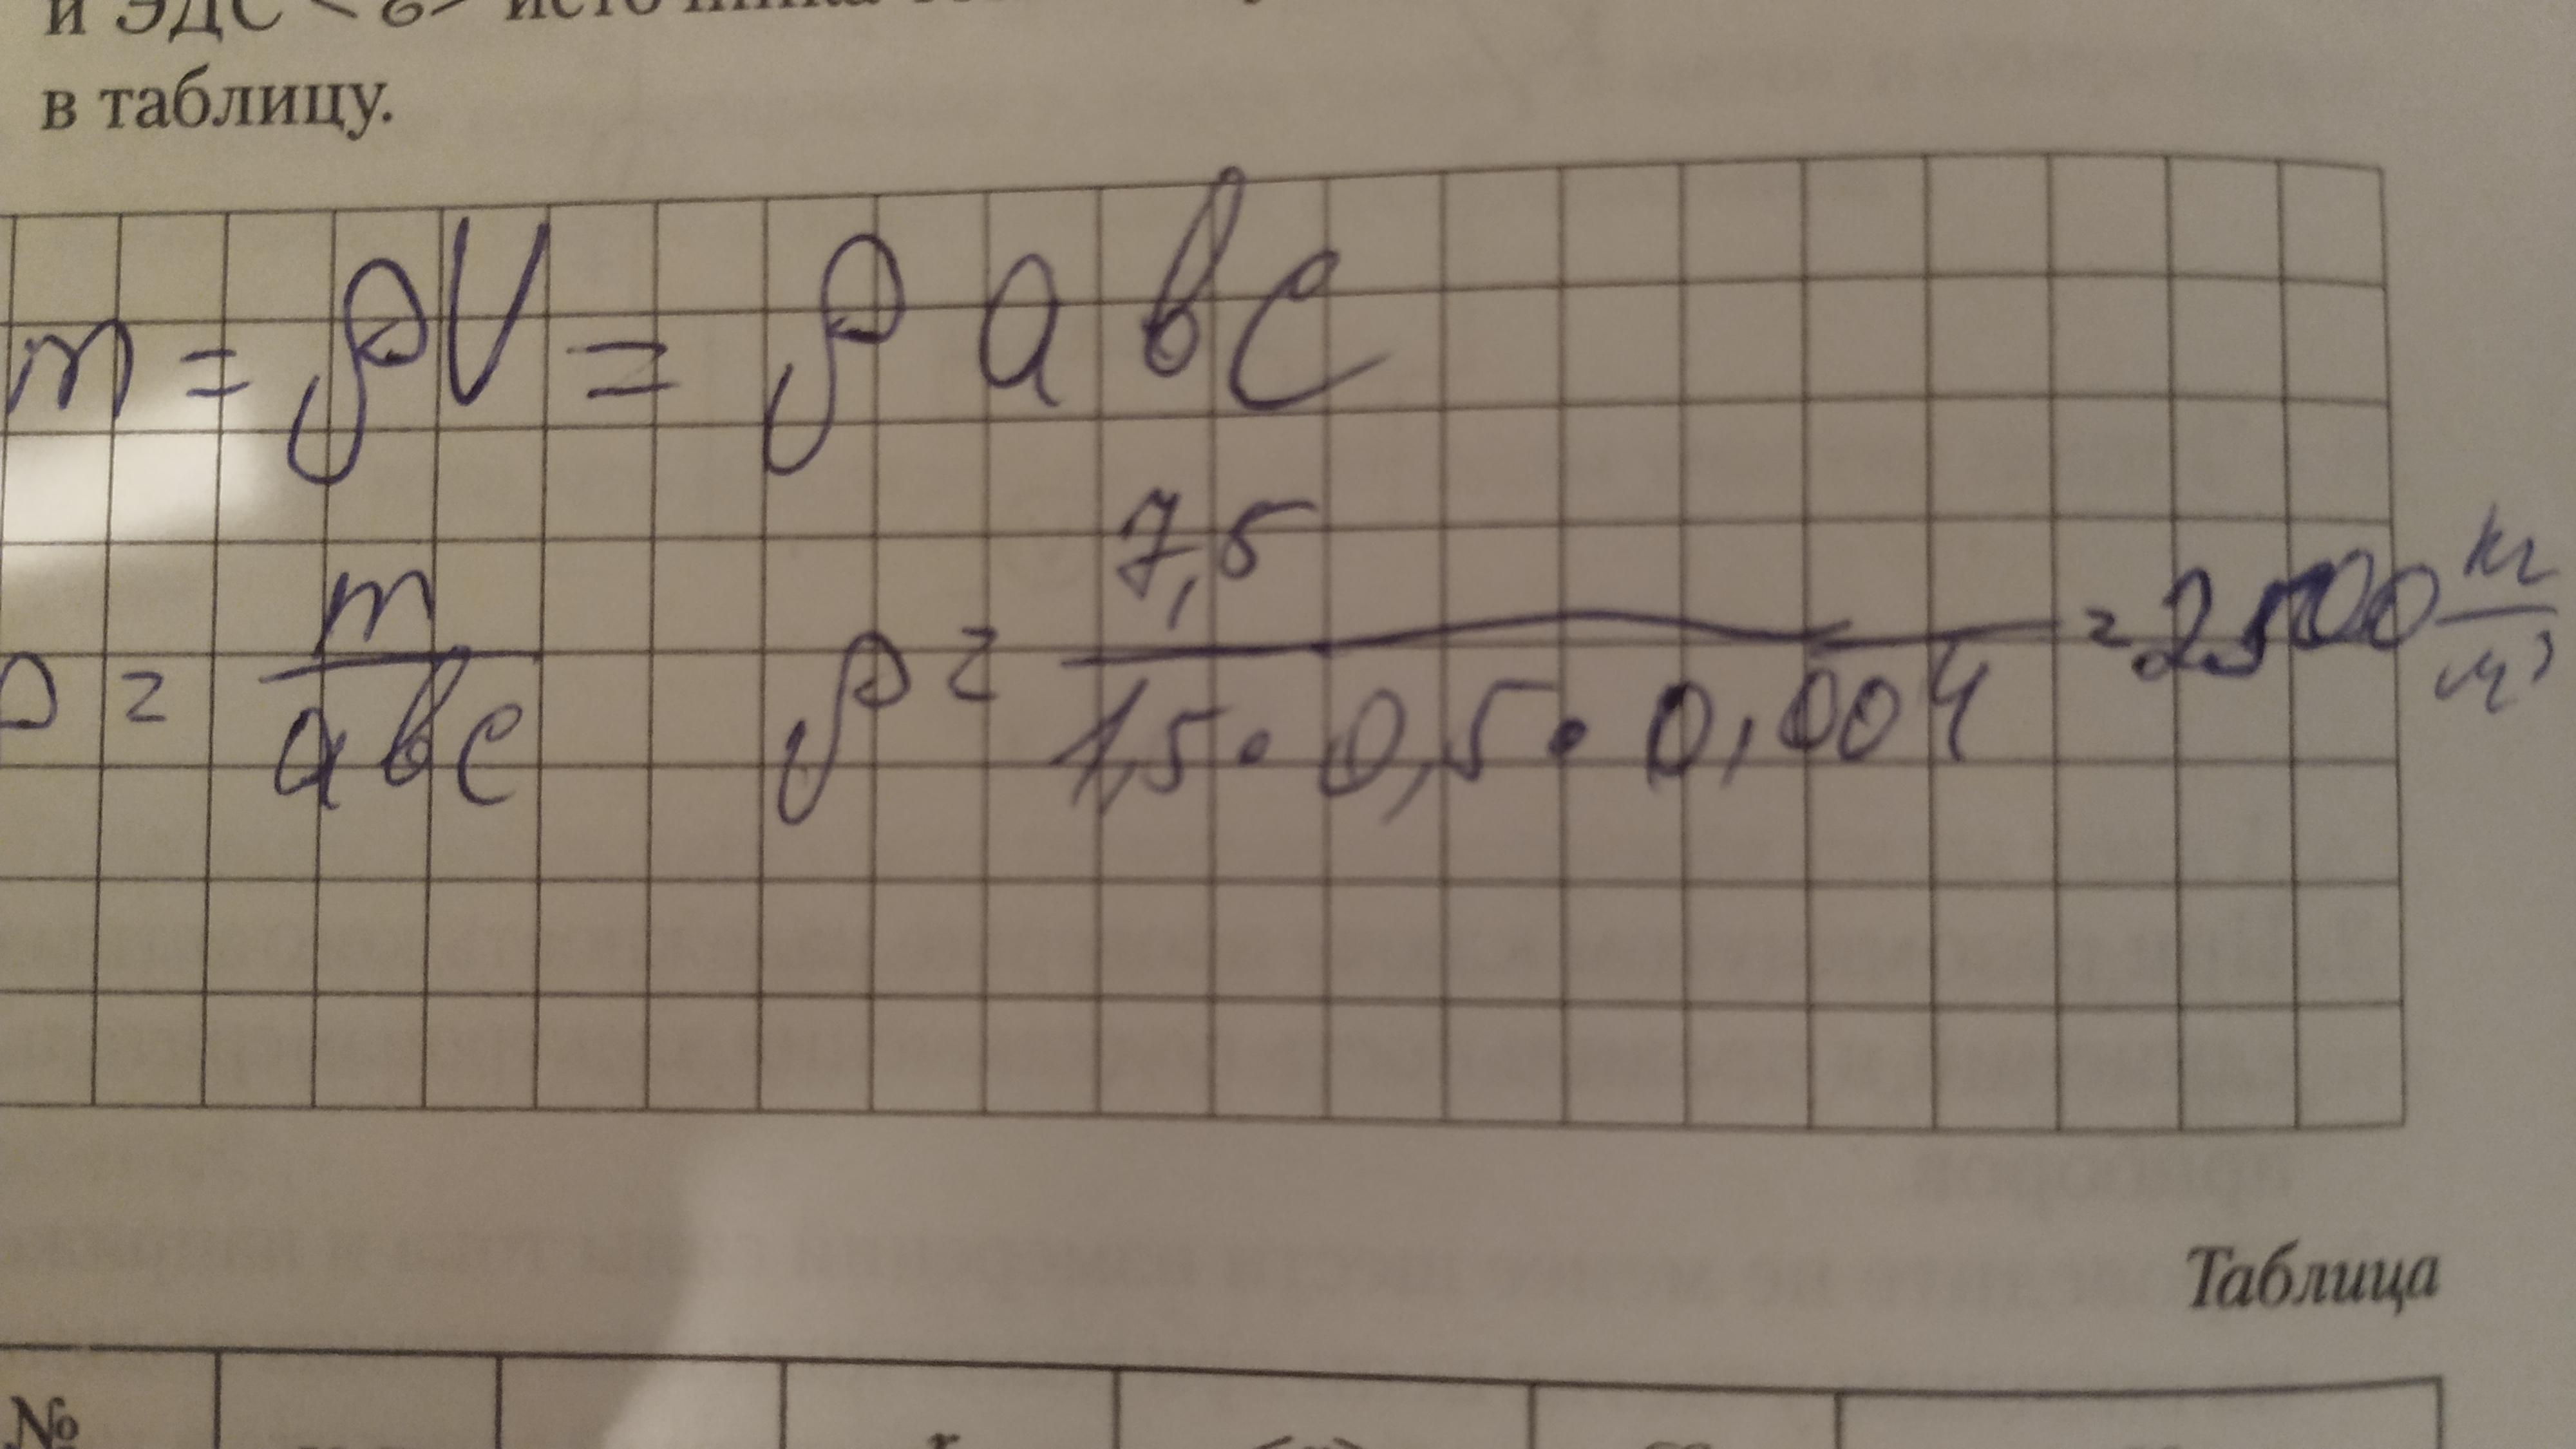 и ЭДС
в таблицу.
m = ρV = ρ a b c
ρ = m / abc ρ = 7,5 / 1,5 · 0,5 · 0,004 = 2500 кг / м³
Таблица
№